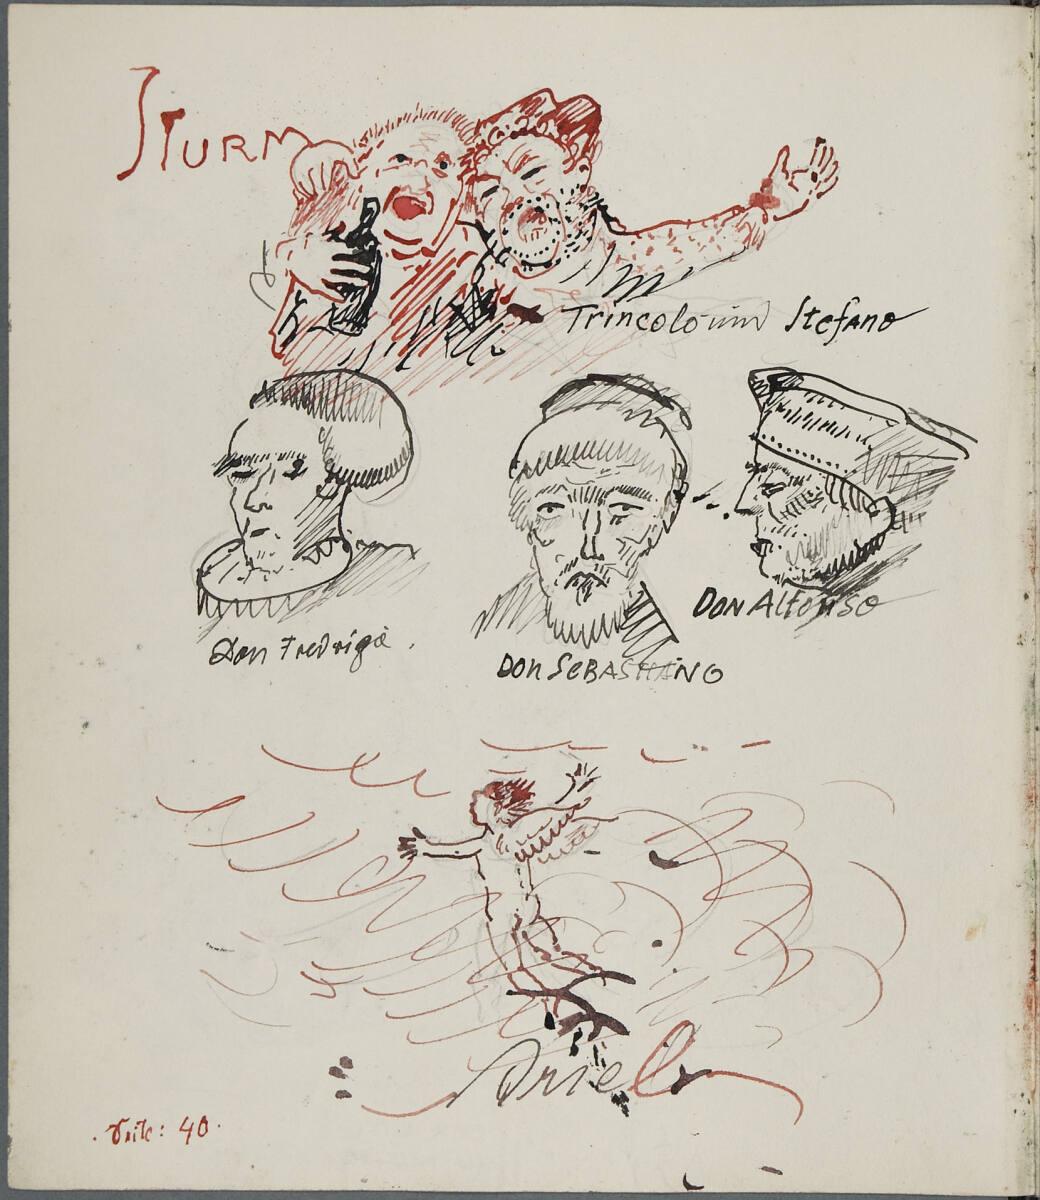 STURM
Trincolo und Stefano
Don Fredrigo.
DON SEBASTIANO
DON Alfonso
Ariel
Seite: 40.